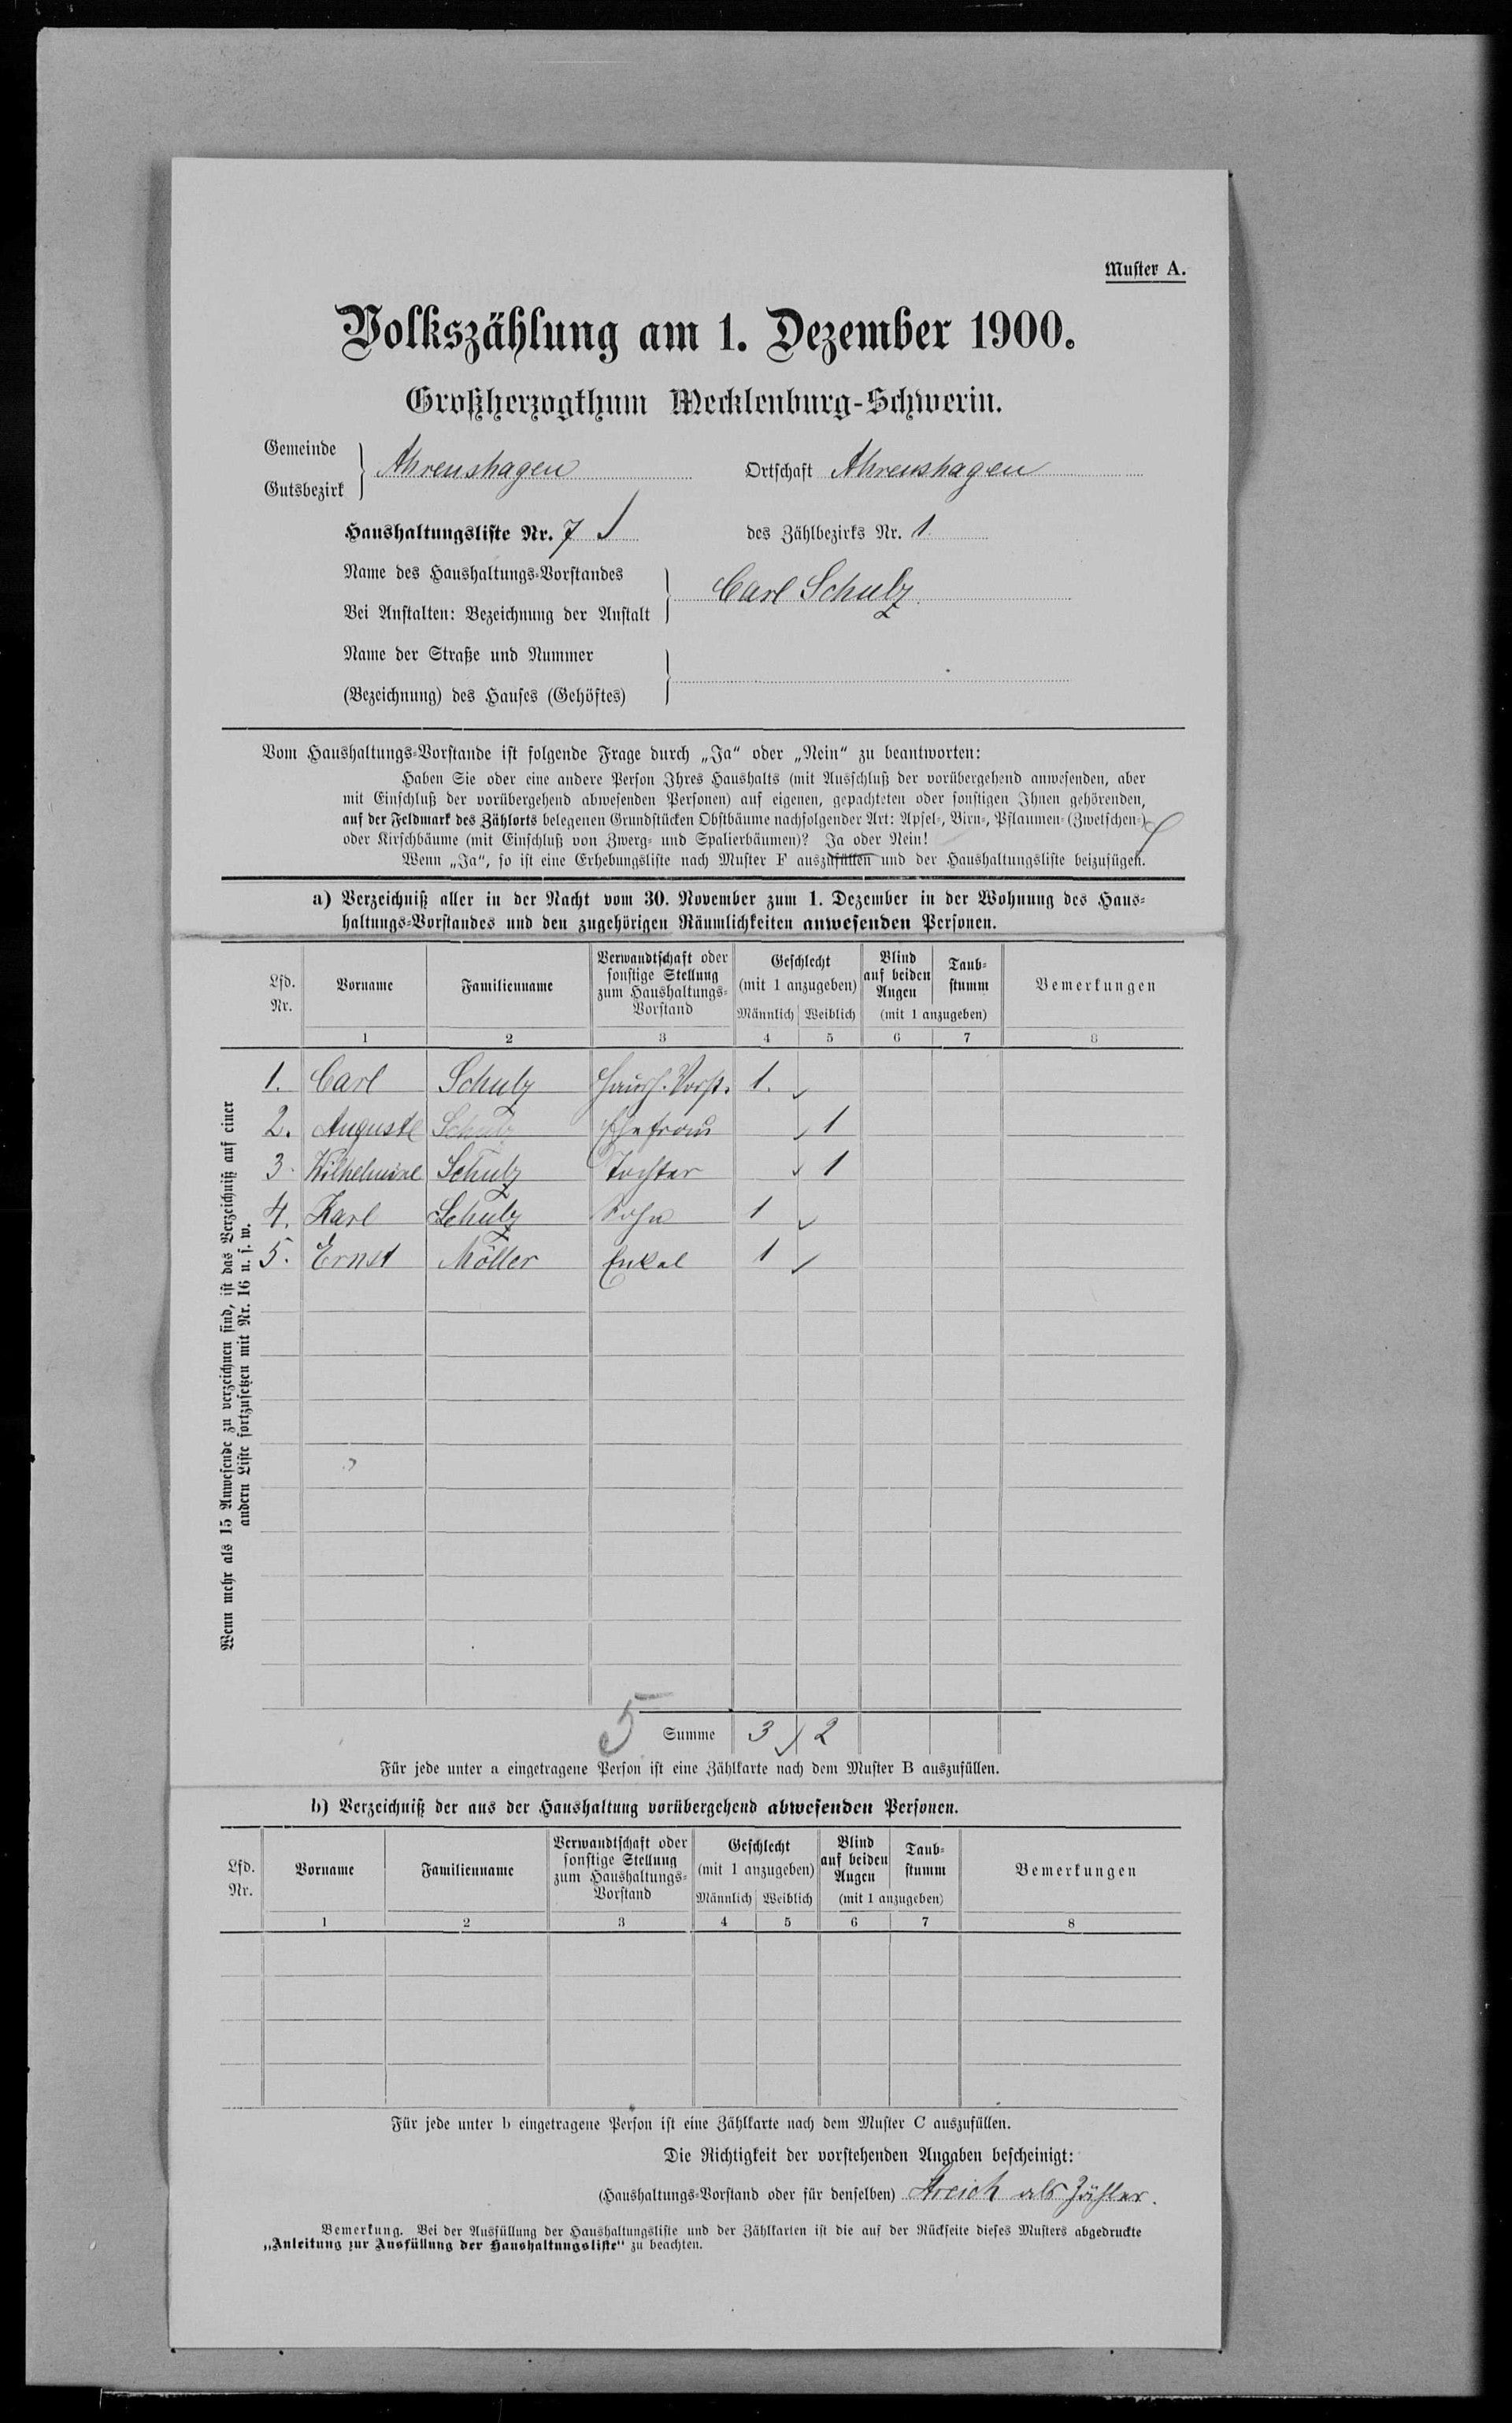 Muster A.
Volkszählung am 1. Dezember 1900.
Großherzogthum Mecklenburg-Schwerin.
Gemeinde
Gutsbezirk
Ahrenshagen
Ortschaft Ahrenshagen
Haushaltungsliste Nr. 7
des Zählbezirks Nr. 1
Name des Haushaltungs-Vorstandes
Bei Anstalten: Bezeichnung der Anstalt
Carl Schulz
Name der Straße und Nummer
(Bezeichnung) des Hauses (Gehöftes)
Vom Haushaltungs-Vorstande ist folgende Frage durch „Ja“ oder „Nein“ zu beantworten:
Haben Sie oder eine andere Person Ihres Haushalts (mit Ausschluß der vorübergehend anwesenden, aber
mit Einschluß der vorübergehend abwesenden Personen) auf eigenen, gepachteten oder sonstigen Ihnen gehörenden,
auf der Feldmark des Zählorts belegenen Grundstücken Obstbäume nachfolgender Art: Apfel-, Birn-, Pflaumen- (Zwetschen-)
oder Kirschbäume (mit Einschluß von Zwerg- und Spalierbäumen)? Ja oder Nein!
Wenn „Ja“, so ist eine Erhebungsliste nach Muster F auszufüllen und der Haushaltungsliste beizufügen.
a) Verzeichniß aller in der Nacht vom 30. November zum 1. Dezember in der Wohnung des Haus-
haltungs-Vorstandes und den zugehörigen Räumlichkeiten anwesenden Personen.
Lfd. Nr. Vorname Familienname Verwandtschaft oder sonstige Stellung zum Haushaltungs-Vorstand Geschlecht (mit 1 anzugeben) Männlich Weiblich Blind auf beiden Augen Taub-stumm (mit 1 anzugeben) Bemerkungen
1 2 3 4 5 6 7 8
1. Carl Schulz Haush. Vorst. 1.
2. Auguste Schulz Ehefrau 1
3. Wilhelmine Schulz Tochter 1
4. Karl Schulz Sohn 1
5. Ernst Möller Enkel 1
Wenn mehr als 15 Anwesende zu verzeichnen sind, ist das Verzeichniß auf einer
andern Liste fortzusetzen mit Nr. 16 u. s. w.
5 Summe 3 2
Für jede unter a eingetragene Person ist eine Zählkarte nach dem Muster B auszufüllen.
b) Verzeichniß der aus der Haushaltung vorübergehend abwesenden Personen.
Lfd. Nr. Vorname Familienname Verwandtschaft oder sonstige Stellung zum Haushaltungs-Vorstand Geschlecht (mit 1 anzugeben) Männlich Weiblich Blind auf beiden Augen Taub-stumm (mit 1 anzugeben) Bemerkungen
1 2 3 4 5 6 7 8
Für jede unter b eingetragene Person ist eine Zählkarte nach dem Muster C auszufüllen.
Die Richtigkeit der vorstehenden Angaben bescheinigt:
(Haushaltungs-Vorstand oder für denselben) Streich als Zähler.
Bemerkung. Bei der Ausfüllung der Haushaltungsliste und der Zählkarten ist die auf der Rückseite dieses Musters abgedruckte
„Anleitung zur Ausfüllung der Haushaltungsliste“ zu beachten.